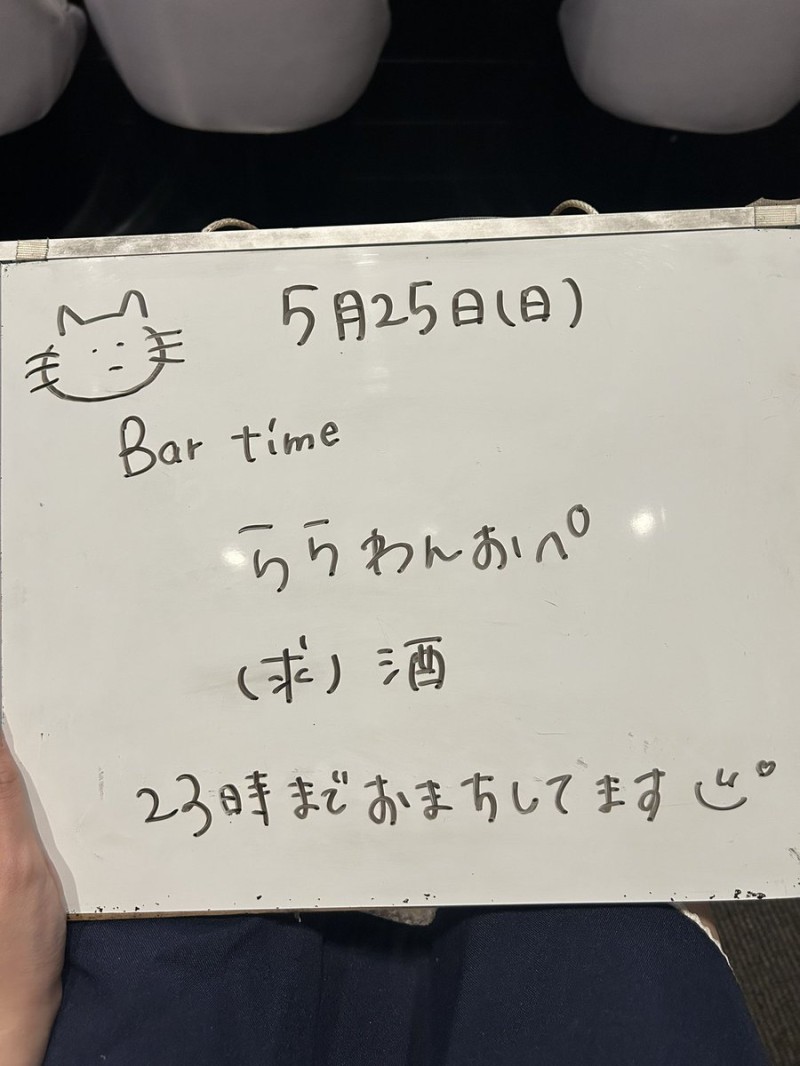 5月25日(日)
Bar time
ららわんおぺ
(求) 酒
23時までおまちしてます